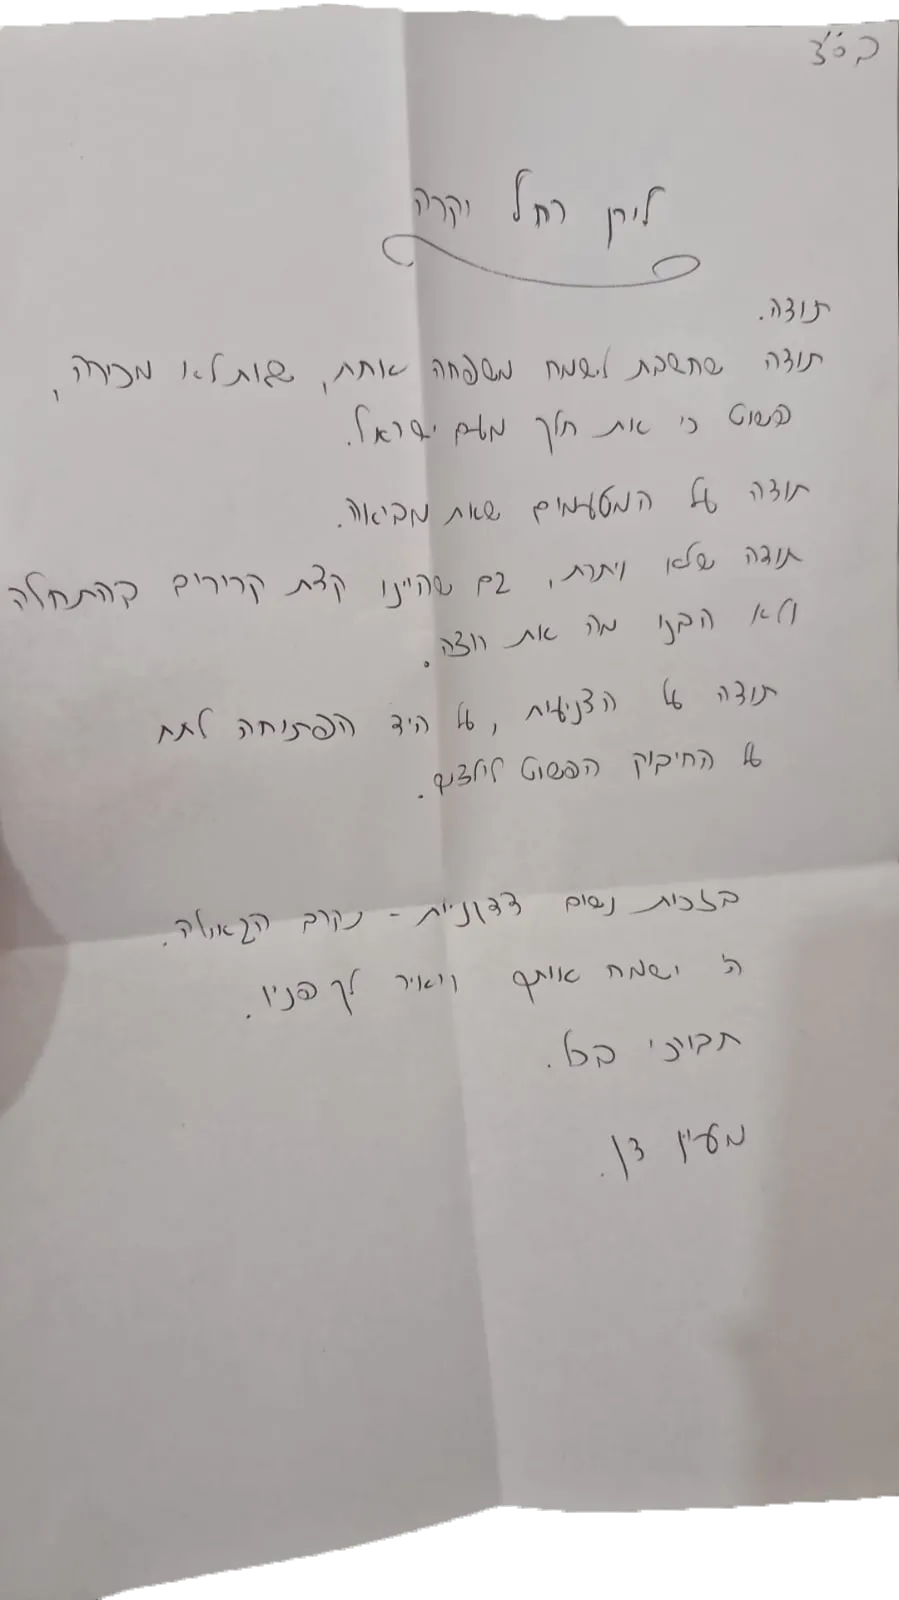 בס"ד
לירן רחל יקרה
תודה.
תודה שחשבת לשמח משפחה אחת, שאת לא מכירה,
פשוט כי את חלק מעם ישראל.
תודה על המטעמים שאת מביאה.
תודה שלא ויתרת, גם שהיינו קצת קרירים בהתחלה
ולא הבנו מה את רוצה.
תודה על הצניעות, על היד הפתוחה לתת
על החיבוק הפשוט לילדנו.
בזכות נשים צדקניות - נקרב הגאולה.
ה' ישמח אותך ויאיר לך פניו.
תבורכי בכל.
מעין דן.